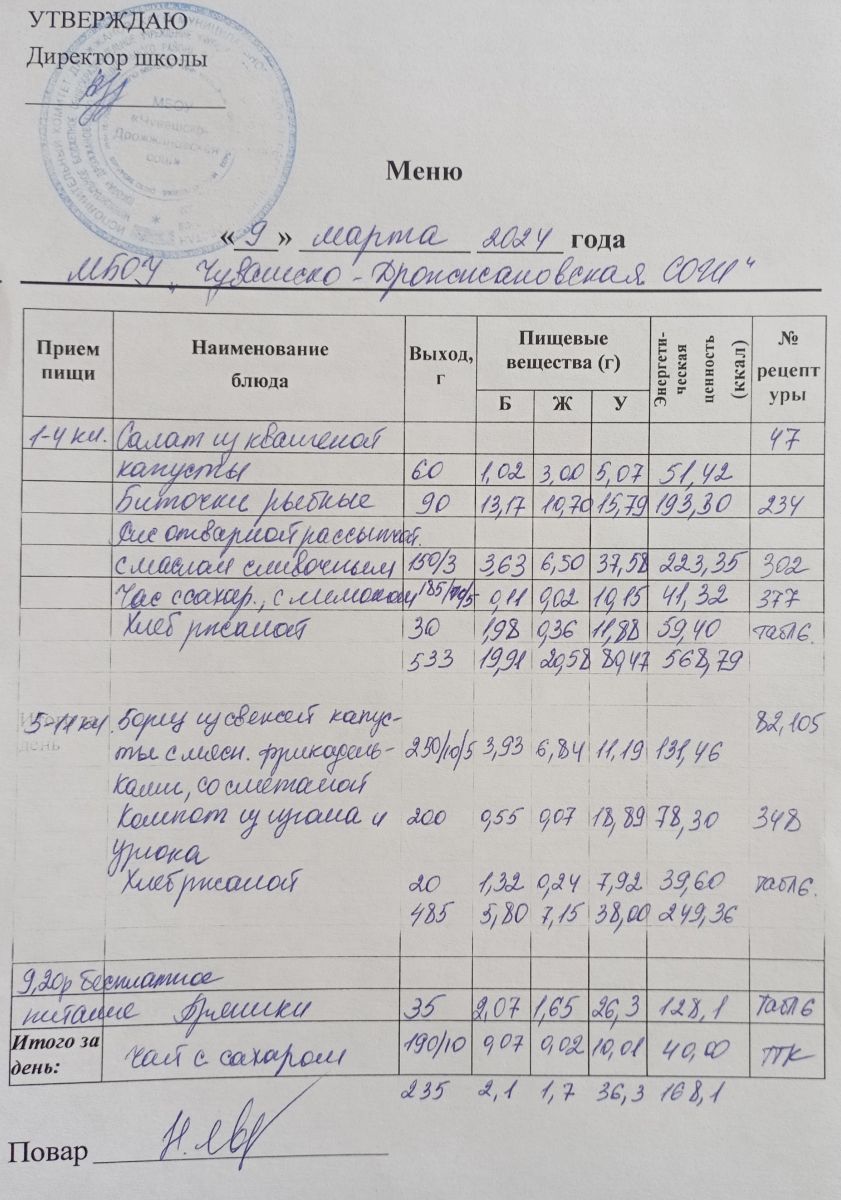 УТВЕРЖДАЮ
Директор школы
МБОУ
«Чувашско-
Дрожжановская
СОШ»
Меню
«9» марта 2024 года
МБОУ „Чувашско-Дрожжановская СОШ"
Прием пищи Наименование блюда Выход, г Пищевые вещества (г) Энергети-ческая ценность (ккал) № рецептуры
Б Ж У
1-4 кл. Салат из квашеной 47
капусты 60 1,02 3,00 5,07 51,42
Биточки рыбные 90 13,17 10,70 15,79 193,30 234
Рис отварной рассыпчат.
с маслом сливочным 150/3 3,63 6,50 37,58 223,35 302
Чай с сахар., с лимоном 185/10/5 0,11 0,02 10,15 41,32 377
Хлеб ржаной 30 1,98 0,36 11,88 59,40 табл6.
533 19,91 20,58 80,47 568,79
5-11 кл. Борщ из свежей капус- 82,105
ты с мясн. фрикадель- 250/10/5 3,93 6,84 11,19 131,46
ками, со сметаной
Компот из изюма и 200 0,55 0,07 18,89 78,30 348
урюка
Хлеб ржаной 20 1,32 0,24 7,92 39,60 табл6.
485 5,80 7,15 38,00 249,36
9,20р бесплатное
питание Пряники 35 2,07 1,65 26,3 128,1 табл6
Итого за день: Чай с сахаром 190/10 0,07 0,02 10,01 40,00 ТТК
235 2,1 1,7 36,3 168,1
Повар